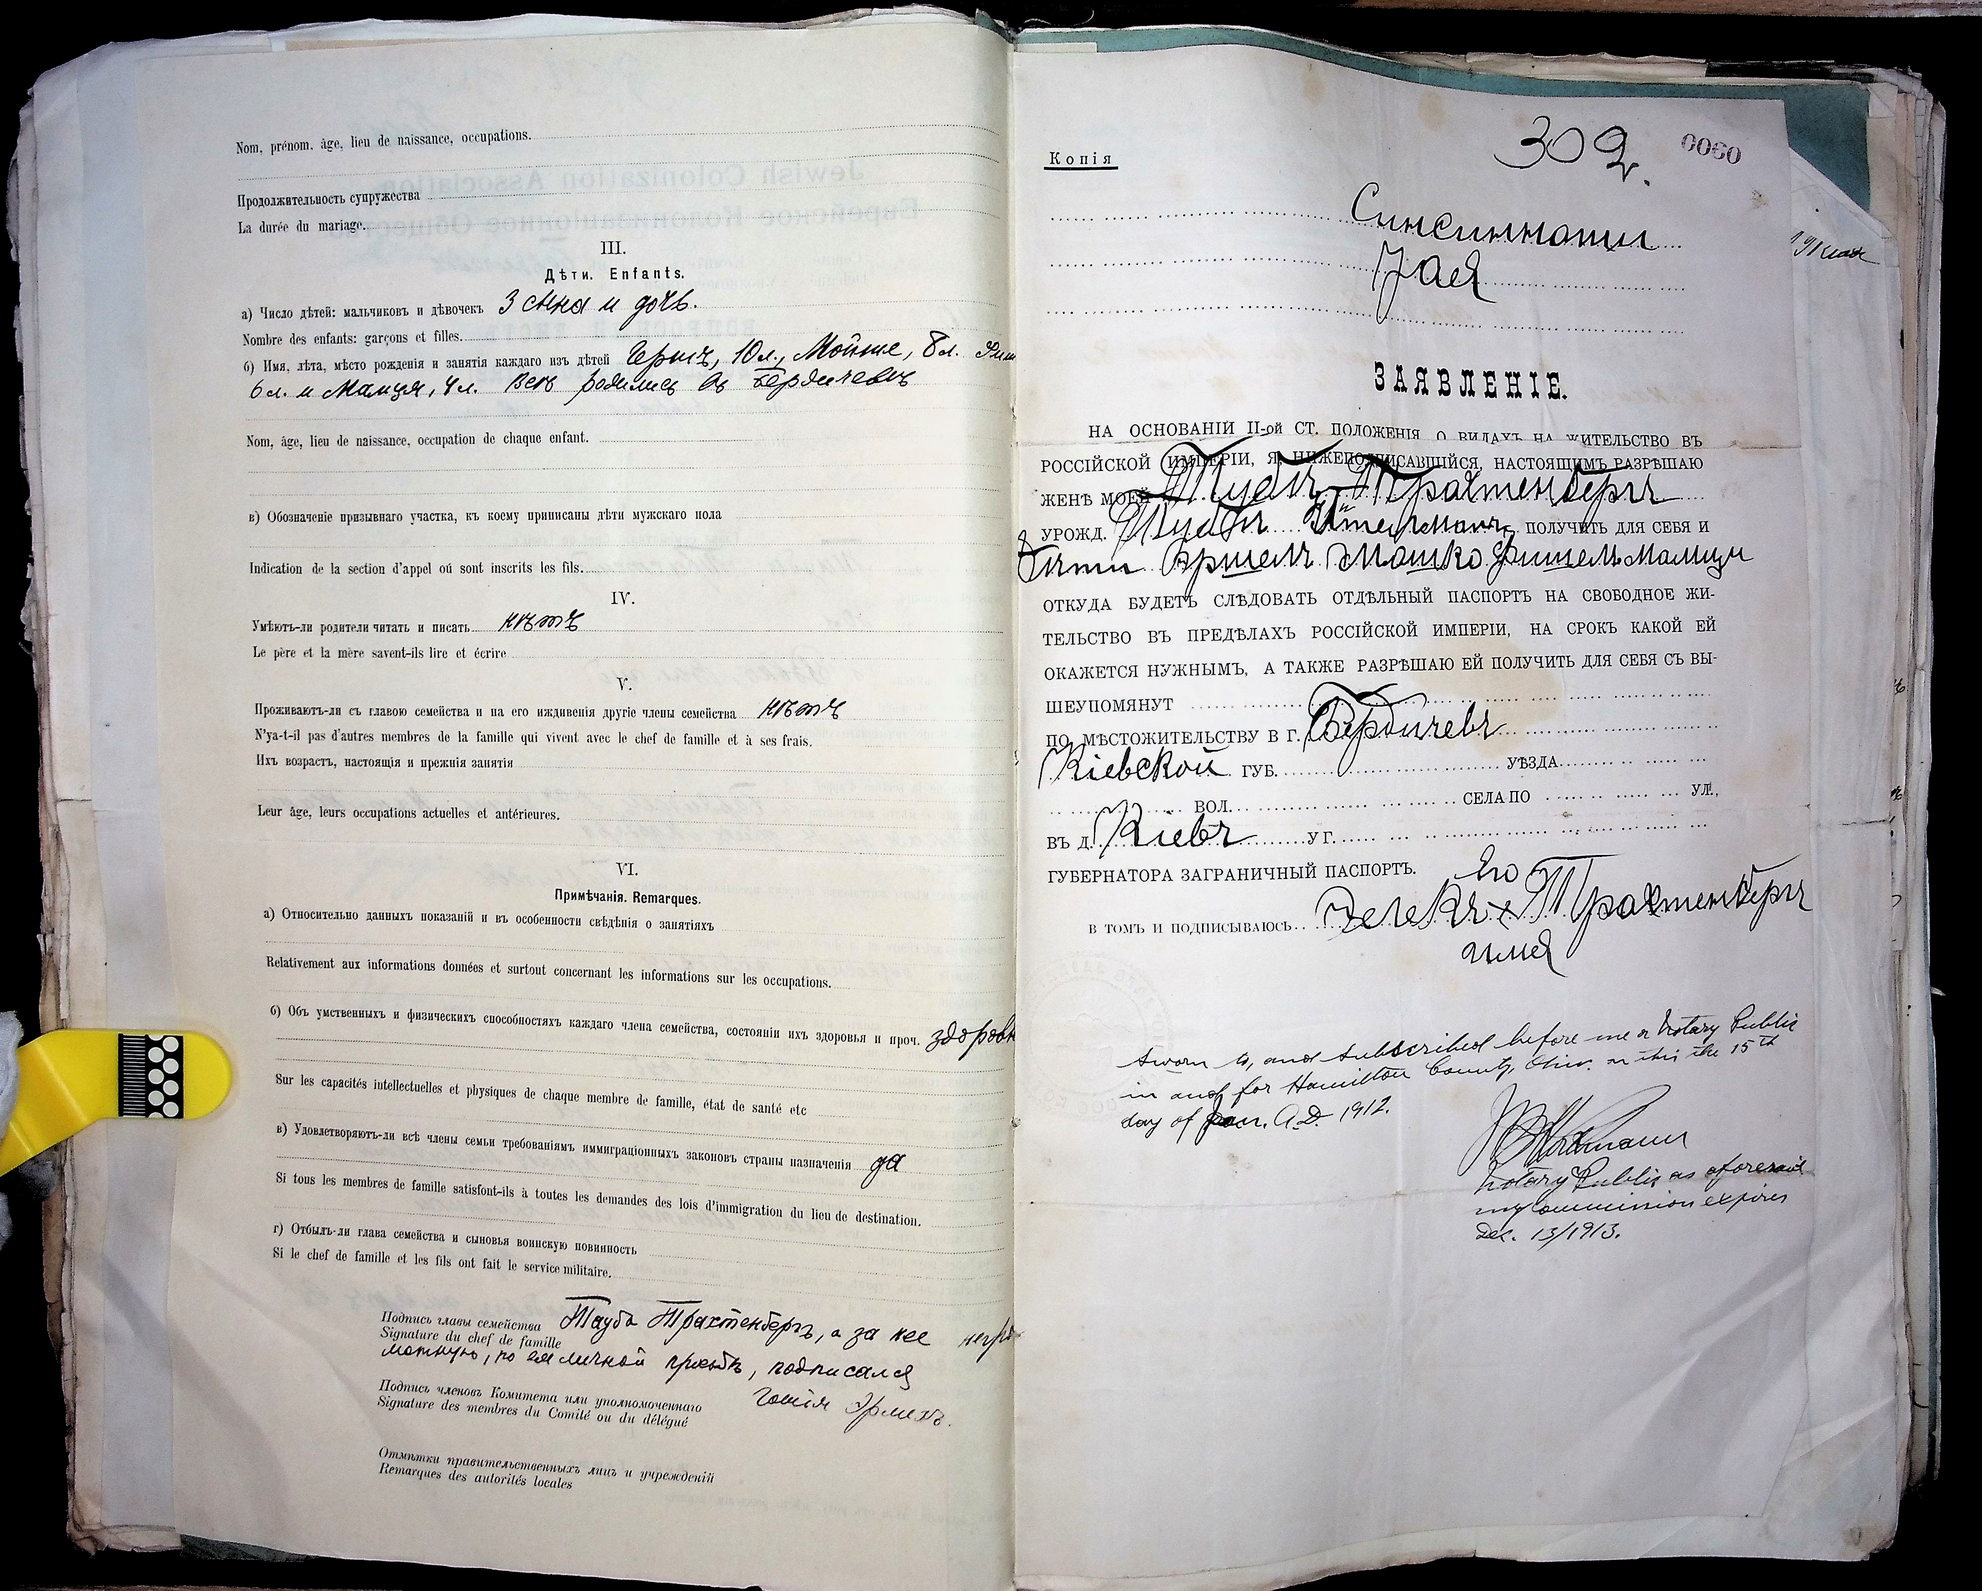 Nom, prénom, âge, lieu de naissance, occupations.
Продолжительность супружества
La durée du mariage.
III.
Дѣти. Enfants.
а) Число дѣтей: мальчиковъ и дѣвочекъ 3 сына и дочь.
Nombre des enfants: garçons et filles.
б) Имя, лѣта, мѣсто рожденія и занятія каждаго изъ дѣтей Гершъ, 10 л., Мойше, 8 л.
6 л. и Манця, 4 л. Всѣ родились въ Бердичевѣ
Nom, âge, lieu de naissance, occupation de chaque enfant.
в) Обозначеніе призывнаго участка, къ коему приписаны дѣти мужскаго пола
Indication de la section d'appel oú sont inscrits les fils.
IV.
Умѣютъ-ли родители читать и писать нѣтъ
Le père et la mère savent-ils lire et écrire
V.
Проживаютъ-ли съ главою семейства и на его иждивенія другіе члены семейства нѣтъ
N'ya-t-il pas d'autres membres de la famille qui vivent avec le chef de famille et à ses frais.
Ихъ возрастъ, настоящія и прежнія занятія
Leur âge, leurs occupations actuelles et antérieures.
VI.
Примѣчанія. Remarques.
а) Относительно данныхъ показаній и въ особенности свѣдѣнія о занятіяхъ
Relativement aux informations données et surtout concernant les informations sur les occupations.
б) Объ умственныхъ и физическихъ способностяхъ каждаго члена семейства, состояніи ихъ здоровья и проч. здоровы
Sur les capacités intellectuelles et physiques de chaque membre de famille, état de santé etc
в) Удовлетворяютъ-ли всѣ члены семьи требованіямъ иммиграціонныхъ законовъ страны назначенія да
Si tous les membres de famille satisfont-ils à toutes les demandes des lois d'immigration du lieu de destination.
г) Отбылъ-ли глава семейства и сыновья воинскую повинность
Si le chef de famille et les fils ont fait le service militaire.
Подпись главы семейства Тауба Трахтенбергъ, а за нее негра
Signature du chef de famille
мотную, по ея личной просьбѣ, подписался
Подпись членовъ Комитета или уполномоченнаго
Signature des membres du Comité ou du délégué
Отмѣтки правительственныхъ лицъ и учрежденій
Remarques des autorités locales
Копія
309.
0060
Синсиннати
ЗАЯВЛЕНІЕ.
НА ОСНОВАНІИ II-ой СТ. ПОЛОЖЕНІЯ О ВИДАХЪ НА ЖИТЕЛЬСТВО ВЪ
РОССІЙСКОЙ ИМПЕРІИ, Я, НИЖЕПОДПИСАВШІЙСЯ, НАСТОЯЩИМЪ РАЗРѢШАЮ
ЖЕНѢ МОЕЙ Трахтенбергъ
УРОЖД. ПОЛУЧИТЬ ДЛЯ СЕБЯ И
Дѣти Ершель Мошко Фишель Манци
ОТКУДА БУДЕТЪ СЛѢДОВАТЬ ОТДѢЛЬНЫЙ ПАСПОРТЪ НА СВОБОДНОЕ ЖИ-
ТЕЛЬСТВО ВЪ ПРЕДѢЛАХЪ РОССІЙСКОЙ ИМПЕРІИ, НА СРОКЪ КАКОЙ ЕЙ
ОКАЖЕТСЯ НУЖНЫМЪ, А ТАКЖЕ РАЗРѢШАЮ ЕЙ ПОЛУЧИТЬ ДЛЯ СЕБЯ СЪ ВЫ-
ШЕУПОМЯНУТ
ПО МѢСТОЖИТЕЛЬСТВУ В Г. Бердичевъ
Кіевской ГУБ. УѢЗДА
ВОЛ. СЕЛА ПО УЛ.,
ВЪ Д. Кіевъ У Г.
ГУБЕРНАТОРА ЗАГРАНИЧНЫЙ ПАСПОРТЪ.
Его
В ТОМЪ И ПОДПИСЫВАЮСЬ Зелекъ x Трахтенбергъ
имя
Sworn to, and subscribed before me a Notary Public
in and for Hamilton County, Ohio. on this the 15th
day of Jan. A.D. 1912.
Notary Public as aforesaid
my Commission expires
Dec. 13/1913.